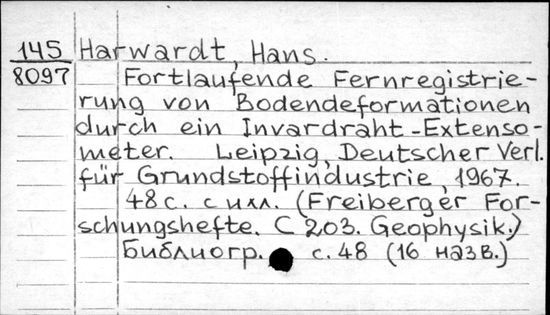 145 Harwardt, Hans.
8097 Fortlaufende Fernregistrie-
rung von Bodendeformationen
durch ein Invardraht-Extenso-
meter. Leipzig, Deutscher Verl.
für Grundstoffindustrie, 1967.
48 с. с илл. (Freiberger For-
schungshefte. C 203. Geophysik.)
Библиогр. с. 48 (16 назв.)